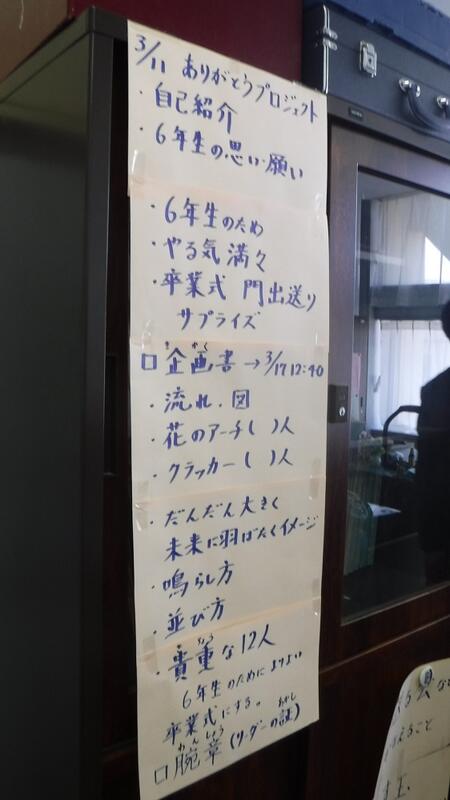 3/11 ありがとうプロジェクト
・自己紹介
・6年生の思い・願い
・6年生のため
・やる気満々
・卒業式 門出送り
サプライズ
き かく
□企画書→3/17 12:40
・流れ・図
・花のアーチ( )人
・クラッカー( )人
・だんだん大きく
未来に羽ばたくイメージ
・鳴らし方
・並び方
き ちょう
・貴重な12人
6年生のためによりよい
卒業式にする。
わんしょう あかし
□腕章(リーダーの証)